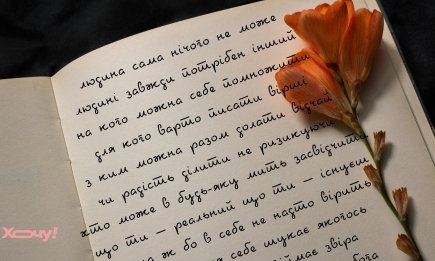 людина сама нічого не може
людині завжди потрібен інший
на кого можна себе помножити
для кого варто писати вірші
з ким можна разом долати відчай
чи радість ділити не ризикуючи
хто може в будь-яку мить засвідчити
що ти – реальний що ти – існуєш
ж бо в себе не надто вірить
себе шукає якогось
має звіра
бога
Хочу!